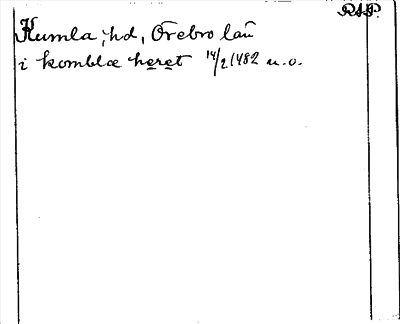 RAP.
Kumla, hd, Örebro län
i komblæ heret 14/2 1482 u.o.